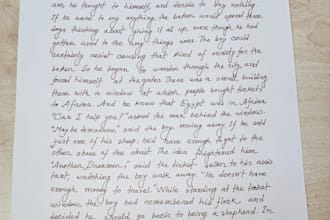 are, he thought to himself, and decided to say nothing.
If he were to say anything, the baker would spend three
days thinking about giving it all up, even though he had
gotten used to the way things were. The boy could
certainly resist causing that kind of anxiety for the
baker. So he began to wander through the city, and
found himself at the gates. There was a small building
there with a window at which people bought tickets
to Africa. And he knew that Egypt was in Africa.
"Can I help you?" asked the man behind the window.
"Maybe tomorrow," said the boy, moving away. If he sold
just one of his sheep, he'd have enough to get to the
other shore of the strait. The idea frightened him.
"Another Dreamer," said the ticket seller to his assis
tant, watching the boy walk away. "He doesn't have
enough money to travel." While standing at the ticket
window, the boy had remembered his flock, and
decided he should go back to being a shepherd. In